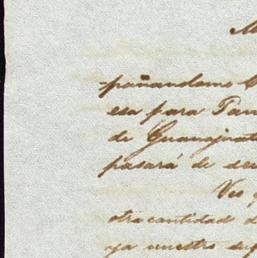 M
-pañandome
esa para Pa
de Guanajuat
pasará de
Ves
otra cantidad d
ya nuestro